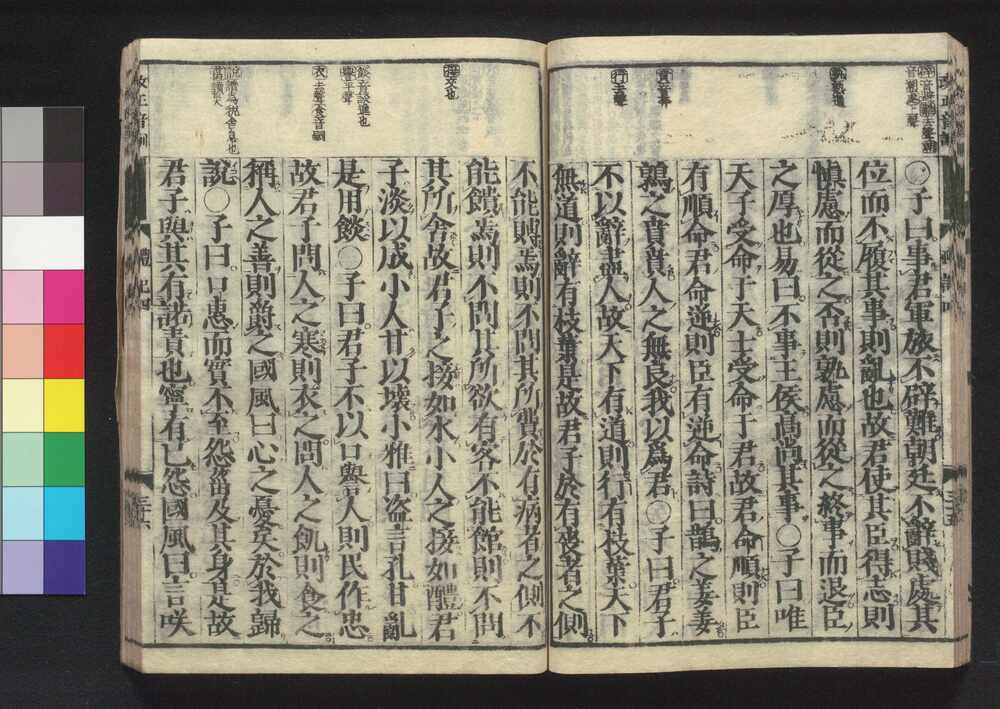 ○子曰事君軍旅不辟難朝廷不辭賤處其
位而不履其事則亂也故君使其臣得志則
愼慮而從之否則孰慮而從之終事而退臣
之厚也易曰不事王侯高尚其事○子曰唯
天子受命于天士受命于君故君命順則臣
有順命君命逆則臣有逆命詩曰鵲之姜姜
鶉之賁賁人之無良我以爲君○子曰君子
不以辭盡人故天下有道則行有枝葉天下
無道則辭有枝葉是故君子於有喪者之側
不能賻焉則不問其所費於有病者之側不
能饋焉則不問其所欲有客不能館則不問
其所舍故君子之接如水小人之接如醴君
子淡以成小人甘以壞小雅曰盜言孔甘亂
是用餤○子曰君子不以口譽人則民作忠
故君子問人之寒則衣之問人之飢則食之
稱人之善則爵之國風曰心之憂矣於我歸
說○子曰口惠而實不至怨菑及其身是故
君子與其有諾責也寧有已怨國風曰言咲
賁音奔
行去聲
接交也
餤音談進也
譽平聲
衣去聲食音嗣
改正音訓
禮記四
三十六